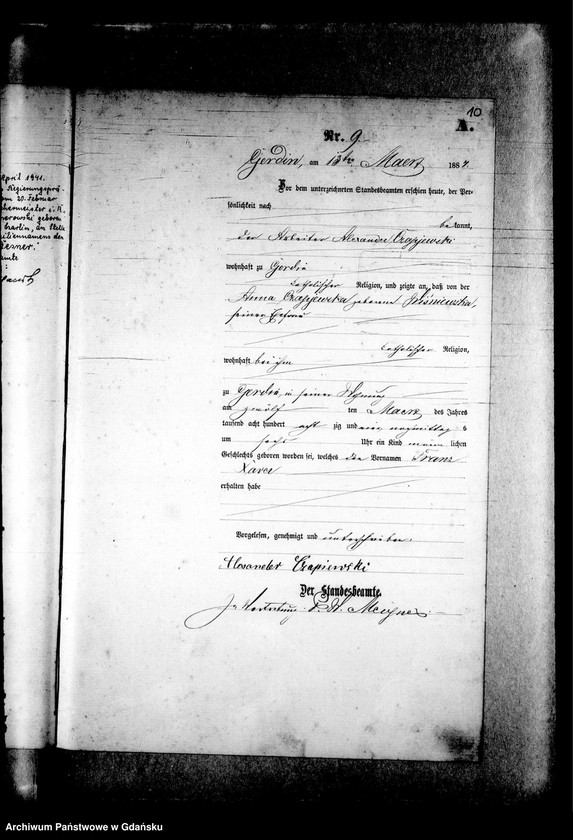 10
A.
Nr. 9
Gerdin, am 13ten Maerz 188
Vor dem unterzeichneten Standesbeamten erschien heute, der Per-
sönlichkeit nach
be kannt,
der Arbeiter Alexander Czapiewski
wohnhaft zu Gerdin
katholischer Religion, und zeigte an, daß von der
Anna Czapiewska geborene Wisniewska,
seiner Ehefrau
katholischer Religion,
wohnhaft bei ihm
zu Gerdin, in seiner Wohnung
am zwölf ten Maerz des Jahres
tausend acht hundert acht zig und nachmittag s
um sechs Uhr ein Kind männ lichen
Geschlechts geboren worden sei, welches die Vornamen Franz
Xaver
erhalten habe
Vorgelesen, genehmigt und unterschrieben.
Alexander Czapiewski
Der Standesbeamte.
In Vertretung.
April 1941.
Regierungsprä-
vom 20. Februar
geboren
Stelle
Familiennamens den
Archiwum Państwowe w Gdańsku